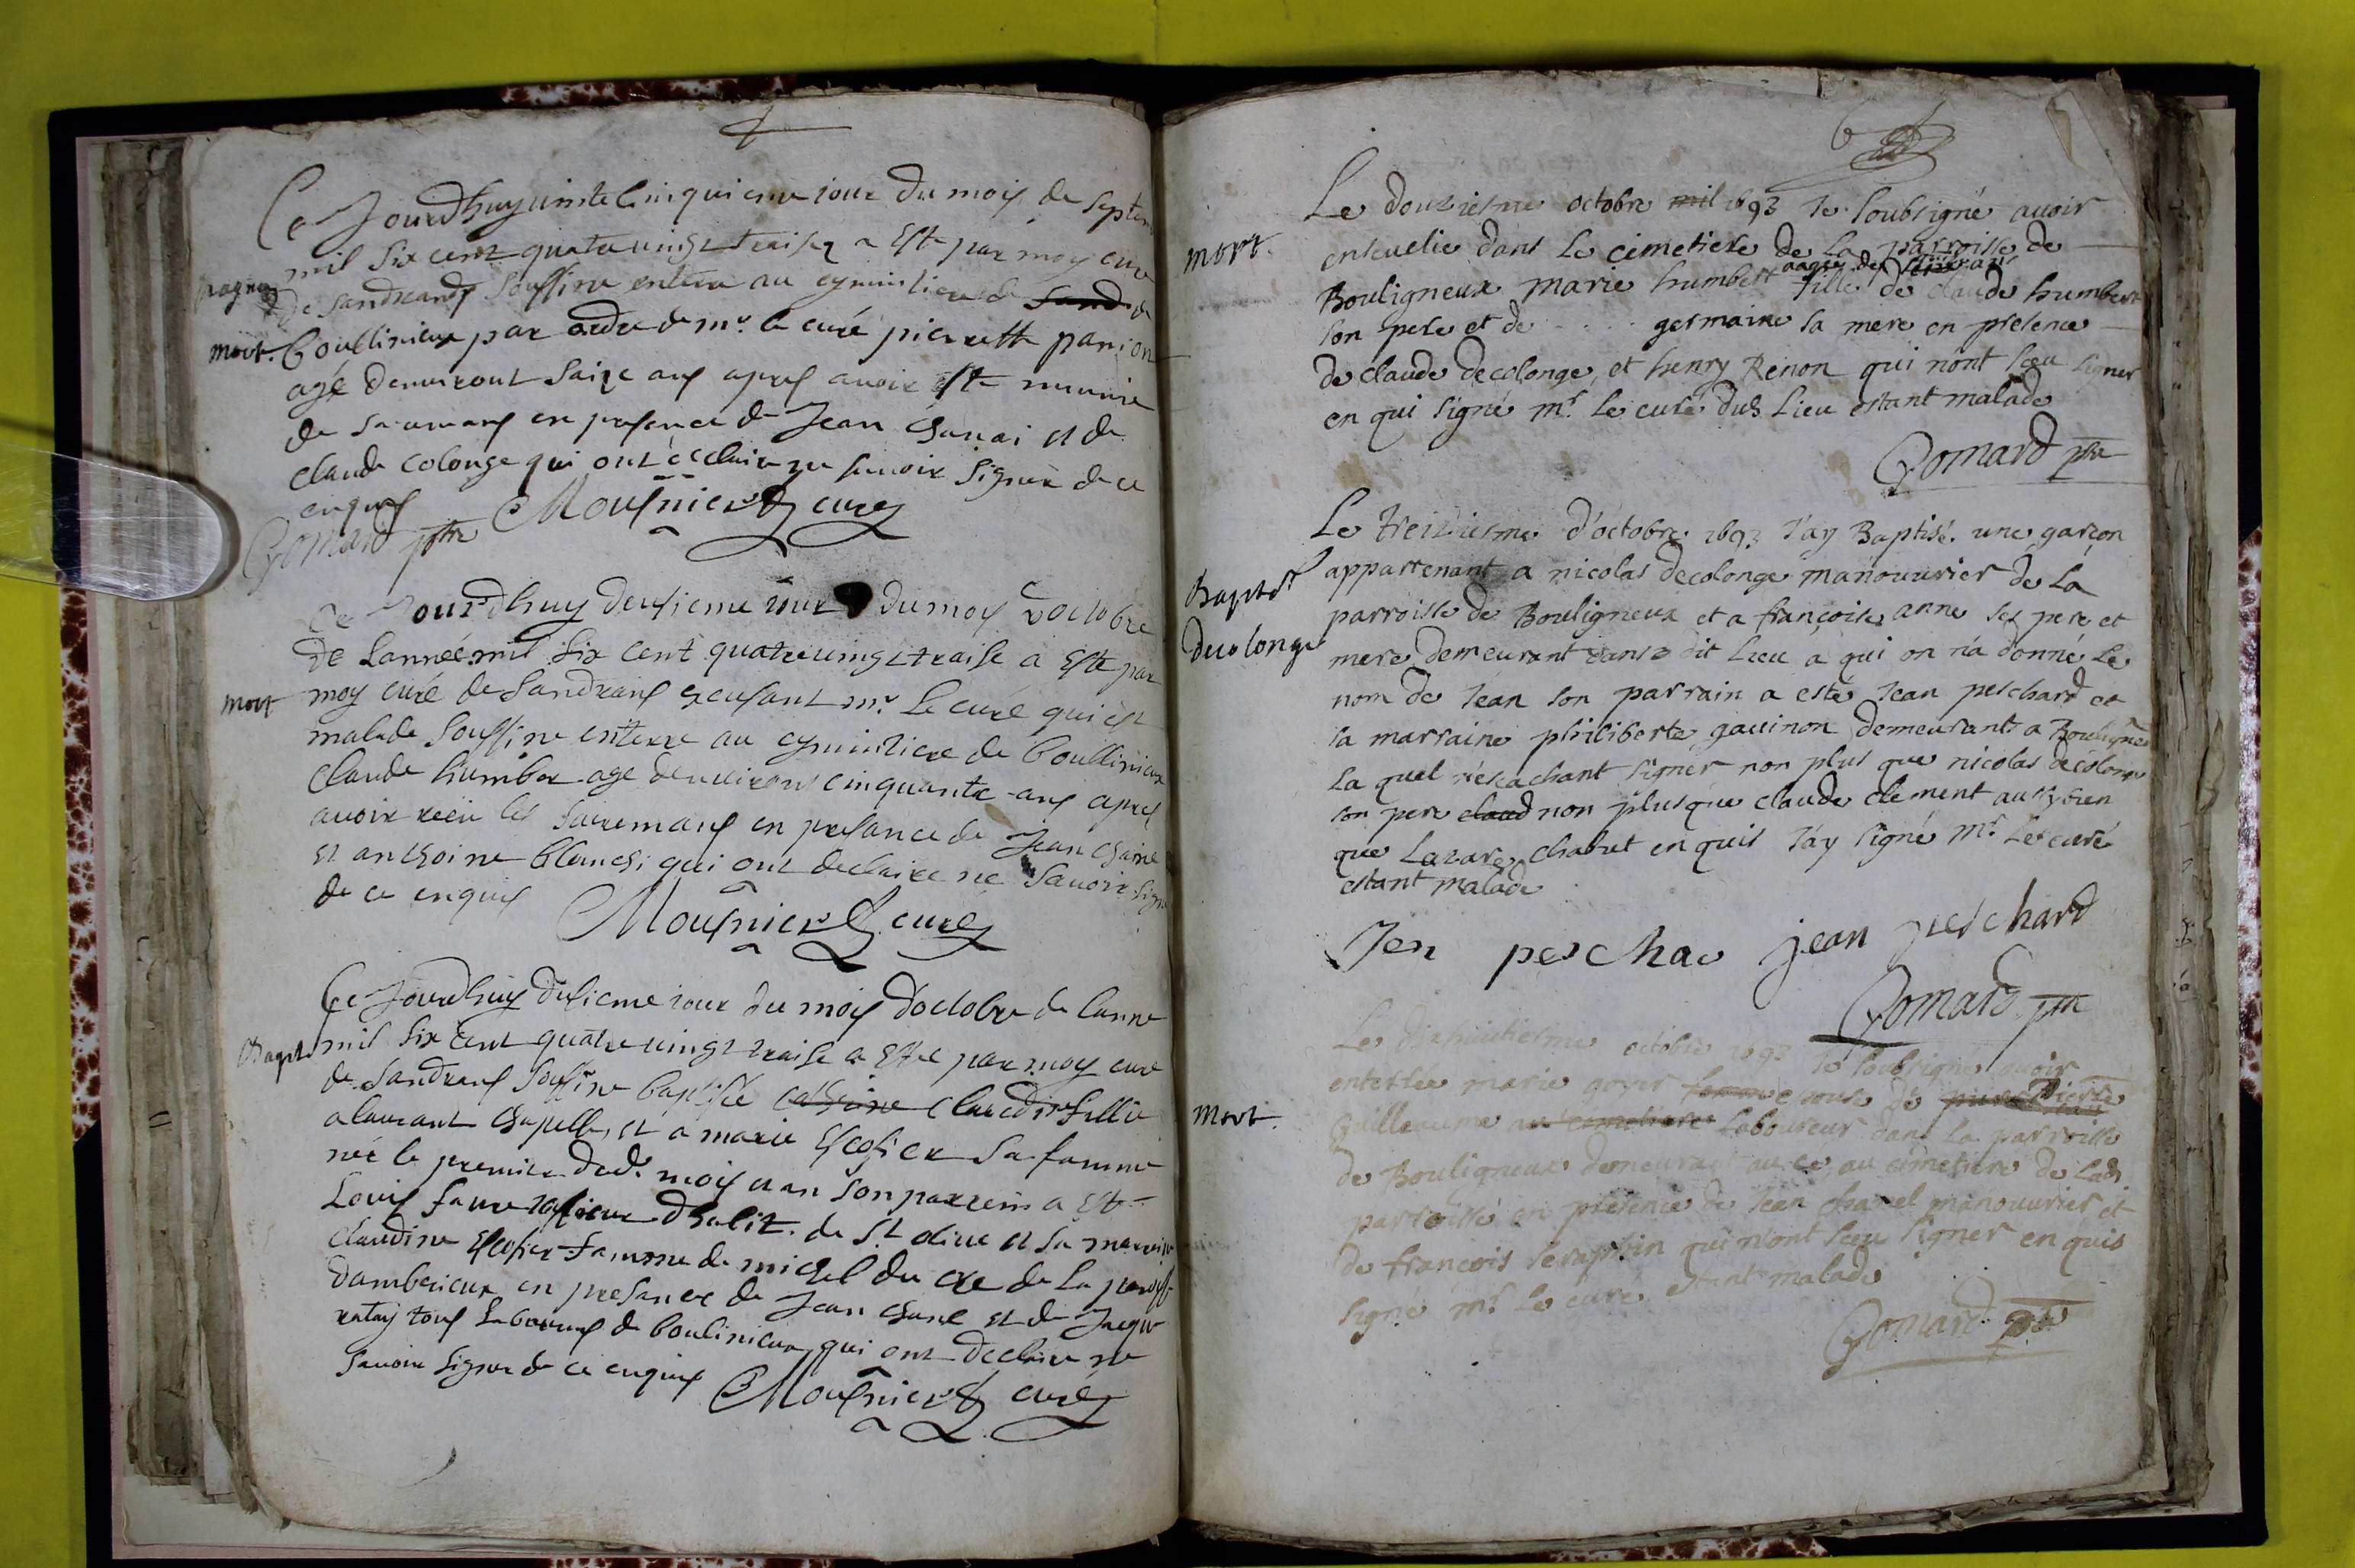 Ce Jourdhuy uinte Cinquieme iour du mois de Septem
mil six cent quatre uingt traisez a Este par moy cure
de Sandrans Soussine enterre au cymintiere de Sand de
Boullinieux par ordre de mr. le curé pierrette panion
mort.
agé denuiront Saize ans apres auoir este munie
de Sacremans en presence de Jean Chanai et de
claude colonge qui ont declaire ne sauoir Signer de ce
enquis
Mousnier curé
Gomard ptre
Ce Jourdhuy deusieme iour du mois d'octobre
de Lannée mil six cent quatre uingt traise a Este par
mort
moy curé de Sandrans excusant mr. Le curé qui est
malade Soussine enterre au cymintiere de Boullinieux
Claude humber age denuirons cinquante ans apres
auoir reçu les Sacremans en presance de Jean chane
et anthoine blanch qui ont declaire ne Sauoir Signe
de ce enquis
Mousnier curé
Ce Jourdhuy dusieme iour du mois d'octobre de Lanne
Bapt
mil six cent quatre uingt traise a Este par moy cure
de Sandrans Soussine baptisée Claudine fillie
a laurant Chapelle, et a marie Escofier Sa famme
née le premier dud. mois et an Son parrein a Este
Louis faure de St oliue et sa marreine
Claudine Escofier famme de michel du cre de La paroisse
dambericux en presance de Jean Chane et de Jaque
ratay tous Laboureurs de boulinieux qui ont declaire ne
Sauoir Signer de ce enquis
Mousnier curé
Le douziesme octobre mil 1693 Je Soubsigné auoir
mort.
enseuelie dans Le cimetiere de La parroisse de
aagée de
Bouligneux marie humbert fille de claude humbert
son pere et de . . . . germaine sa mere en presence
de claude decolonge, et henry Renon qui nont sceu signer
en qui signé mr. Le curé dud. Lieu estant malade
Gomard ptre
Le treiziesme d'octobre 1693 J'ay Baptisé une garçon
Baptes
appartenant a nicolas decolonge manouurier de La
parroisse de Bouligneux et a françoise anne ses pere et
decolonge
mere demeurant dans dit Lieu a qui on n'a donné Le
nom de Jean son parrain a esté Jean peschard et
sa marraine philiberte gauinon demeurants a Bouligneu
La quel n'escachant signer non plus que nicolas decolonge
son pere claud non plusque claude clement aussy bien
que Lazare chabut en quis J'ay signé mr. Le curé
estant malade
Jen peschao jean peschard
Gomard ptre
Le dixhuictiesme octobre 1693 Je soubsigné auoir
enterrée marie goyer femme epouse de pierre
Mort.
Guilleaume au cemetiere Laboureur dans la parroisse
de Bouligneux demeurant au cimetiere de Lad.
parroisse en presence de Jean chanel manouurier et
de françois seraphin qui n'ont sceu signer en quis
signé mr. Le curé estant malade
Gomard ptre